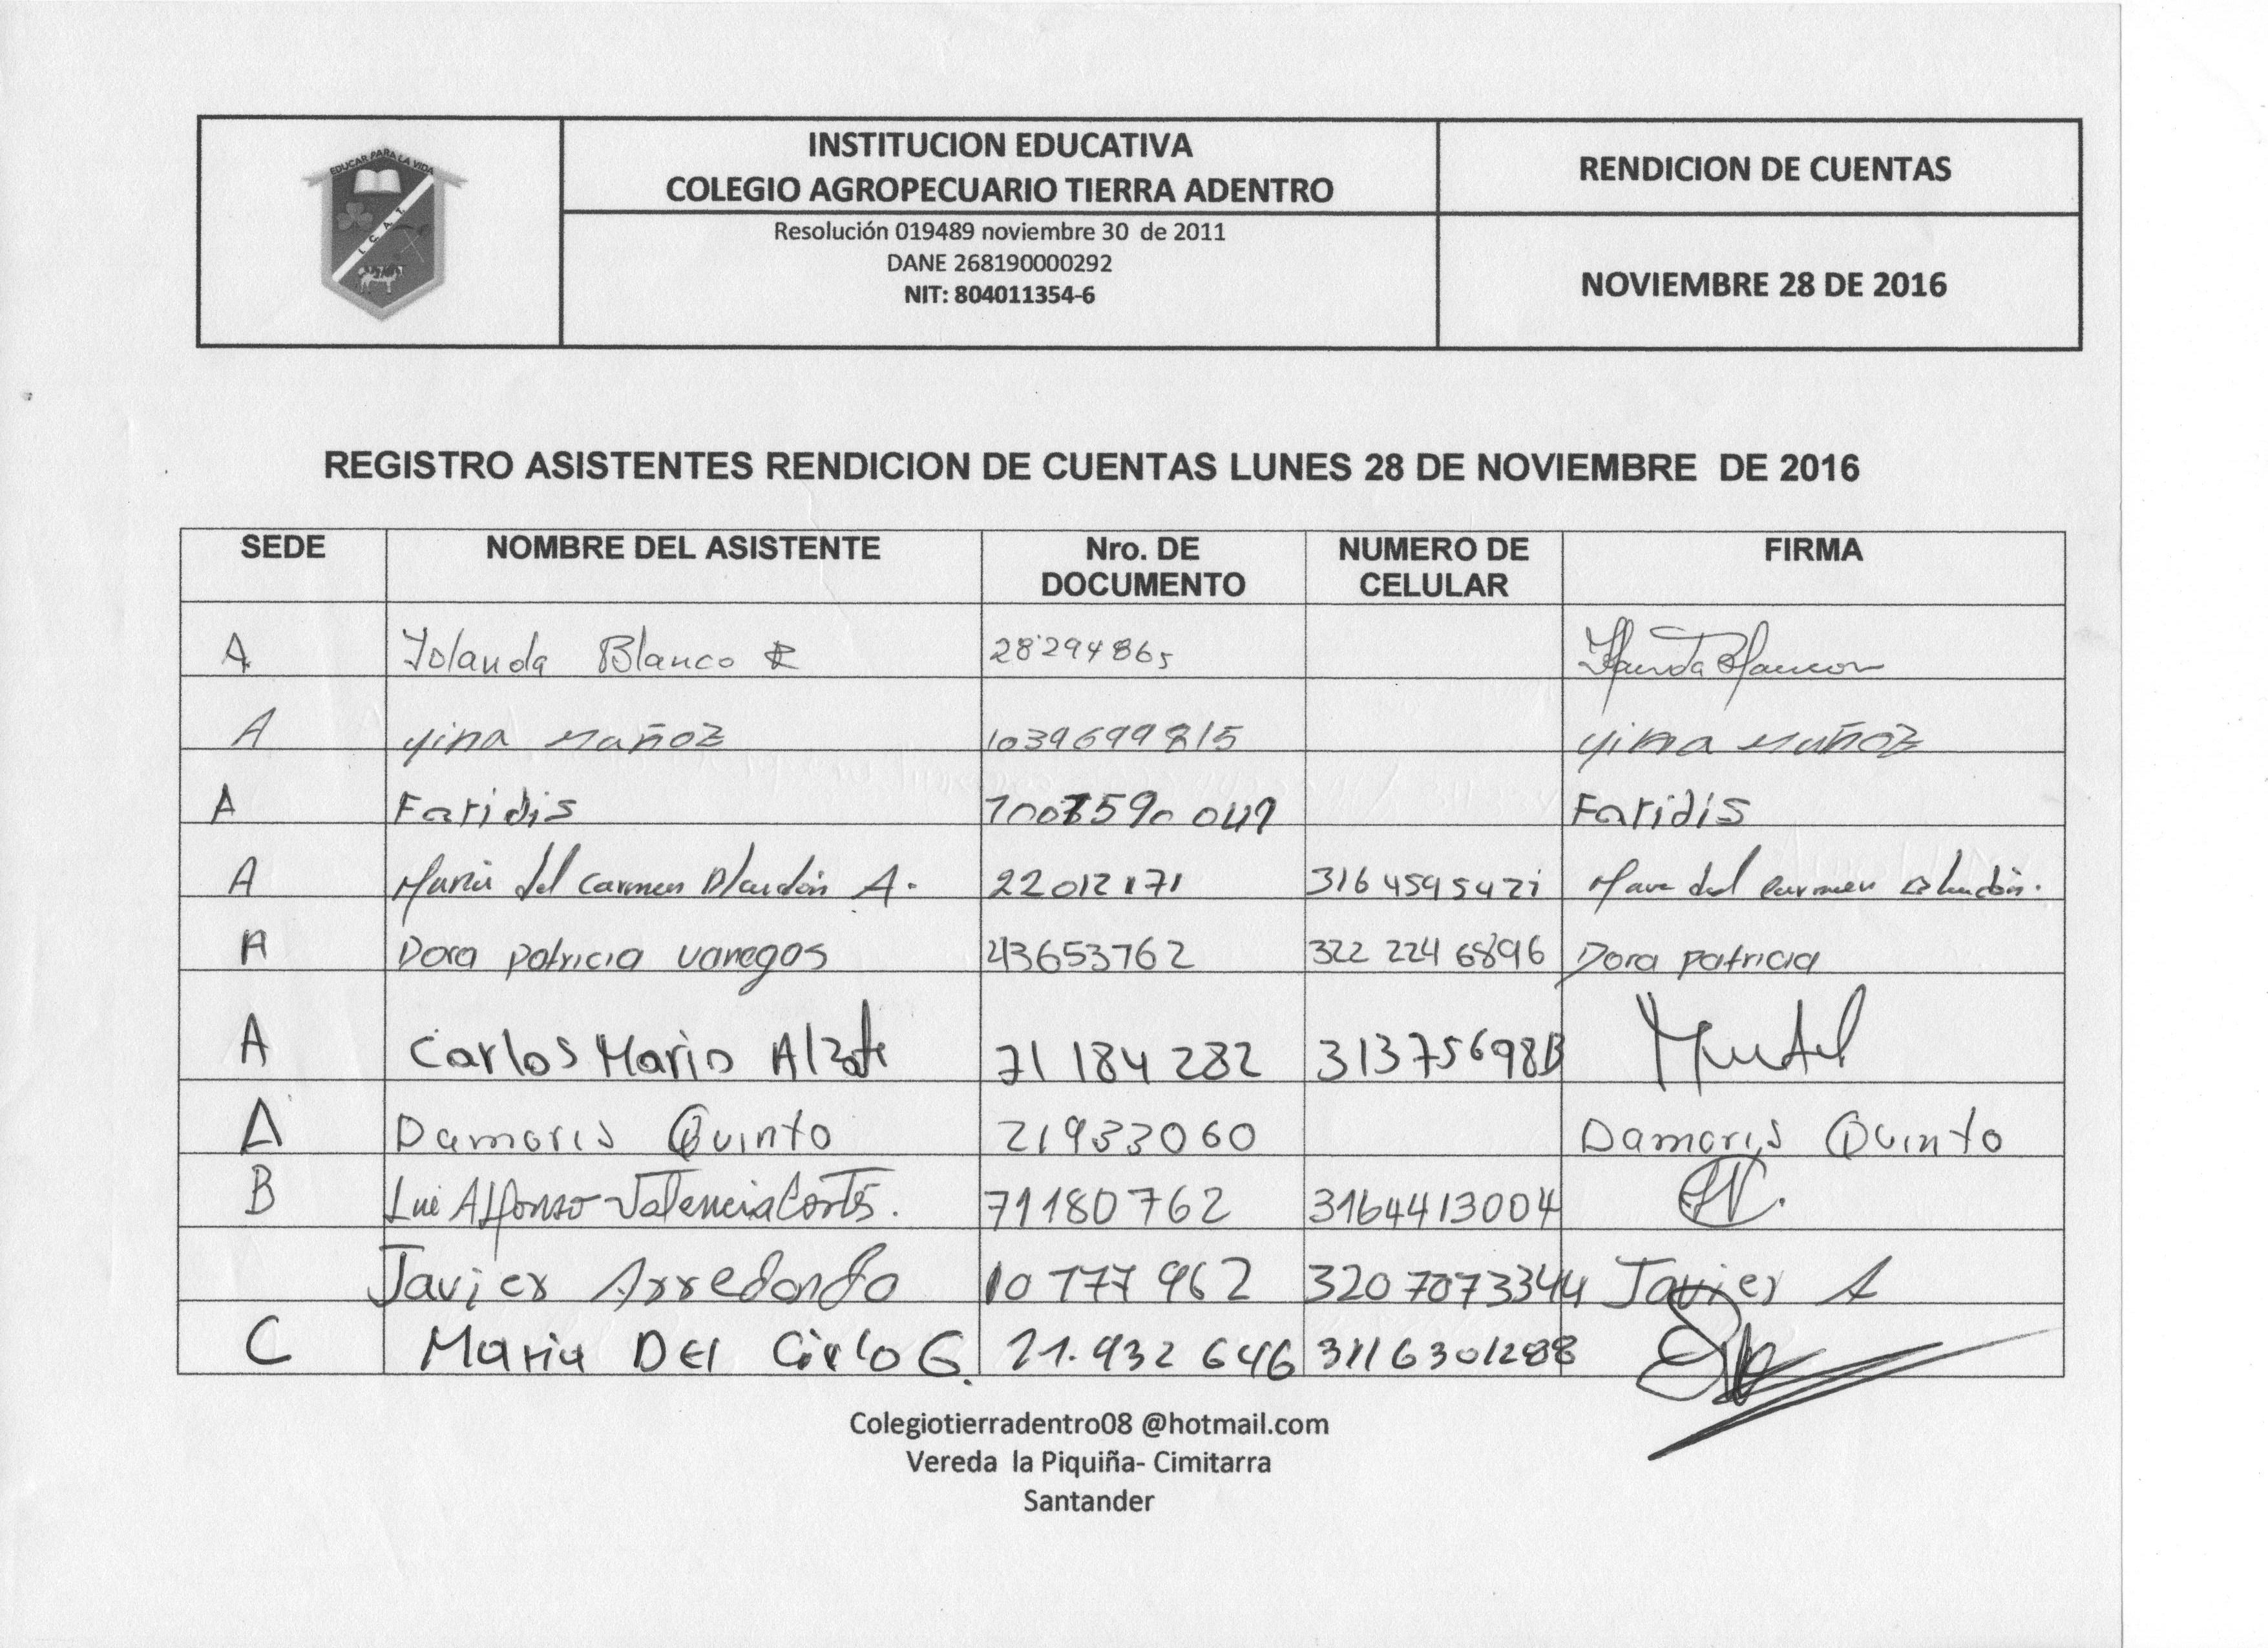 EDUCAR PARA LA VIDA
I. C. A. T.
INSTITUCION EDUCATIVA
COLEGIO AGROPECUARIO TIERRA ADENTRO
RENDICION DE CUENTAS
Resolución 019489 noviembre 30 de 2011
DANE 268190000292
NIT: 804011354-6
NOVIEMBRE 28 DE 2016
REGISTRO ASISTENTES RENDICION DE CUENTAS LUNES 28 DE NOVIEMBRE DE 2016
SEDE NOMBRE DEL ASISTENTE Nro. DE DOCUMENTO NUMERO DE CELULAR FIRMA
A Yolanda Blanco R 28'294865
A yina muñoz 1039699815 yina muñoz
A Faridis Faridis
A Maria del Carmen Blandón A. 22012171 316 4595421
A Dora patricia vanegas 43653762 322 224 6896 Dora patricia
A Carlos Mario Alzate 71 184 282
A Damaris Quinto 21933060 Damaris Quinto
B Luis Alfonso Valencia Cortés. 71180762 3164413004
Javier Arredondo 10 777 962 320 7073344 Javier A
C Maria DEl Cielo G. 21.932 646 3116301288
Colegiotierradentro08 @hotmail.com
Vereda la Piquiña- Cimitarra
Santander